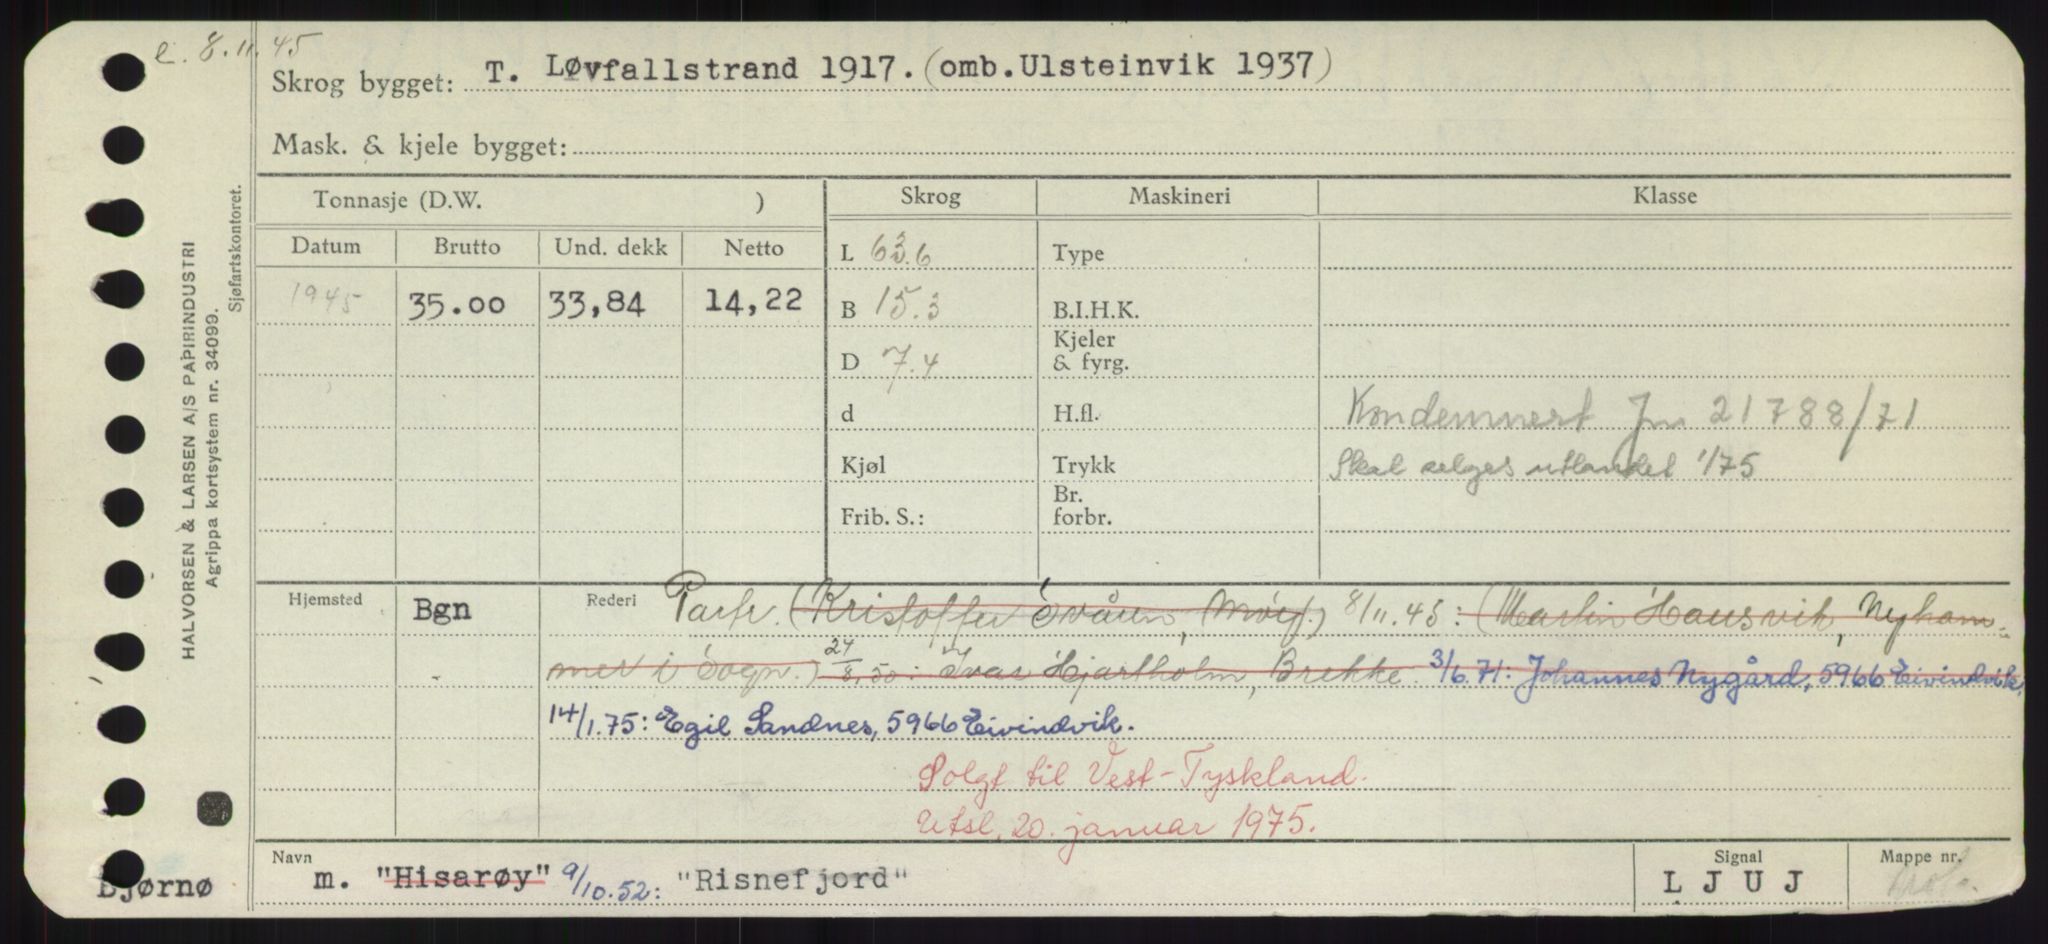 e. 8.11.45
Skrog bygget: T. Løvfallstrand 1917. (omb. Ulsteinvik 1937)
Mask. & kjele bygget:
HALVORSEN & LARSEN A/S PAPIRINDUSTRI
Agrippa kortsystem nr. 34099.
Sjøfartskontoret.
Tonnasje (D.W. ) Skrog Maskineri Klasse
Datum Brutto Und. dekk Netto L 63.6 Type
1945 35.00 33,84 14,22 B 15.3 B.I.H.K.
D 7.4 Kjeler & fyrg.
d H.fl. Kondemnert Jnr 21788/71
Kjøl Trykk Skal selges utlandet 1/75
Frib. S.: Br. forbr.
Hjemsted Bgn Rederi Partr. (Kristoffer Svåren, ) 8/11.45: (Martin Hausvik, Nyham-
mer i Sogn.) 24/8.50: Ivar Hjartholm, Brekke. 3/6.71: Johannes Nygård, 5966 Eivindvik.
14/1.75: Egil Sandnes, 5966 Eivindvik.
Solgt til Vest-Tyskland.
Utsl. 20. januar 1975.
Navn Signal Mappe nr.
Bjørnø m. "Hisarøy" 9/10.52: "Risnefjord" L J U J